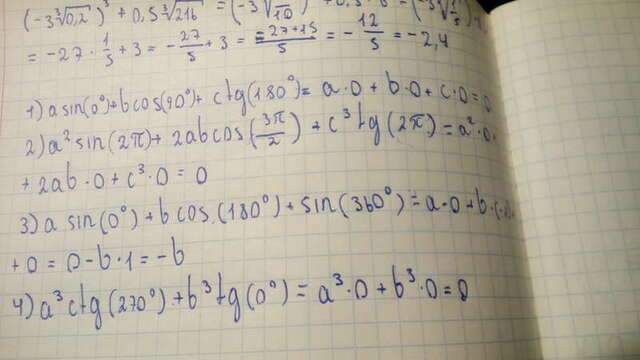 (-3∛0,2)³ + 0,5 ∛216 = (-3∛
= -27 · 1/5 + 3 = -27/5 + 3 = (-27+15)/5 = -12/5 = -2,4
1) a sin(0°)+b cos(90°)+ c tg(180°)= a·0 + b·0 + c·0 = 0
2) a² sin(2π)+ 2ab cos(3π/2) + c³ tg(2π) = a²·0
+ 2ab · 0 + c³ · 0 = 0
3) a sin(0°) + b cos(180°) + sin(360°) = a·0 + b·(-
+ 0 = 0 - b·1 = -b
4) a³ ctg(270°) + b³ tg(0°) = a³·0 + b³·0 = 0